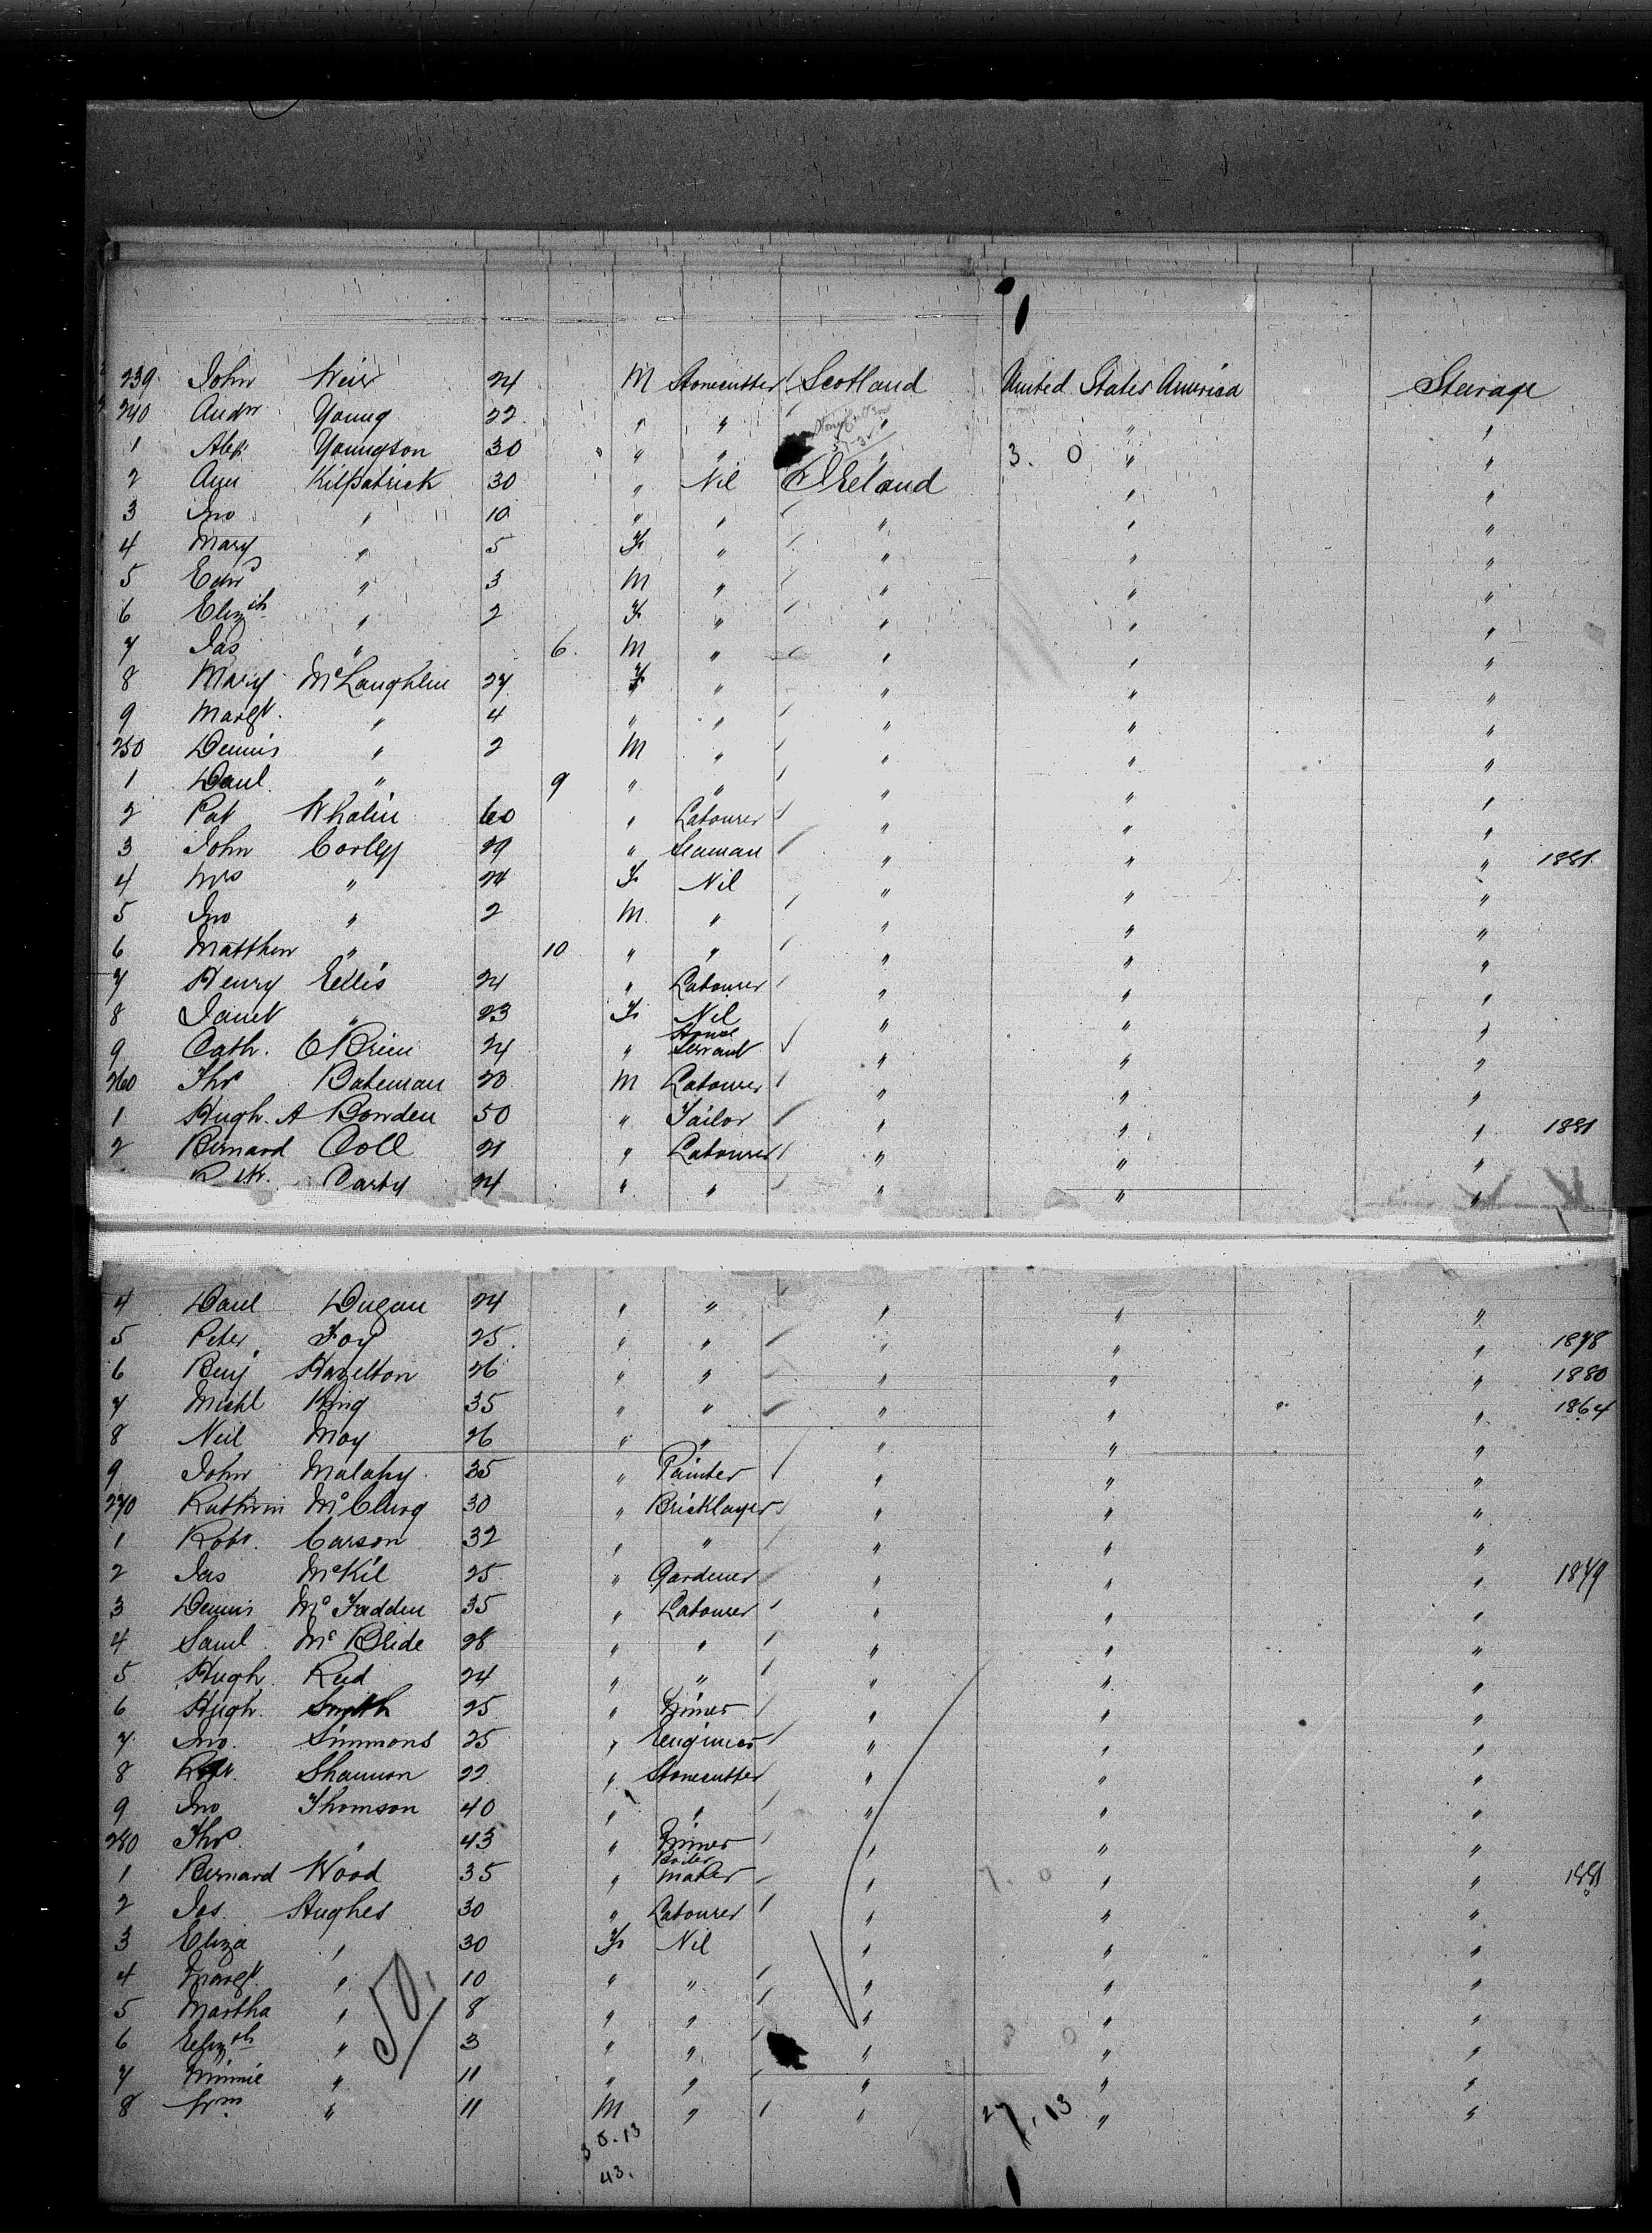 239. John Weir 24 M Stonecutter Scotland United States America Steerage
240 Andw Young 22 " " " " "
1 Alex Youngson 30 " " " 3. 0 " "
2 Ann Kilpatrick 30 " Nil Ireland " "
3 Jno " 10 " " " " "
4 Mary " 5 F " " " "
5 Edwd " 3 M " " " "
6 Elizth " 2 F " " " "
7 Jas " 6. M " " " "
8 Mary McLaughlin 27 F " " " "
9 Margt. " 4 " " " " "
250 Dennis " 2 M " " " "
1 Danl. " 9 " " " " "
2 Pat Whalin 60 " Labourer " " "
3 John Corley 29 " Seaman " " " 1881.
4 Mrs " 24 F Nil " " "
5 Jno " 2 M " " " "
6 Matthew " 10 " " " " "
7 Henry Ellis 24 " Labourer " " "
8 Janet " 23 F Nil " " "
9 Cath. O'Brien 24 " House Servant " " "
260 Thos Bateman 20 M Labourer " " "
1 Hugh. A Bowden 50 " Tailor " " " 1881
2 Bernard Coll 21 " Labourer " " "
Carty 24 " " " " "
4 Danl Dugan 24 " " " " "
5 Peter Foy 25. " " " " " 1878
6 Benj Hazelton 26 " " " " " 1880
7 Michl King 35 " " " " " 1864
8 Neil Moy 26 " " " " "
9 John Malaby. 35 " Painter " " "
270 McClurg 30 " Bricklayer " " "
1 Robt. Carson 32 " " " " "
2 Jas McKil 25 " Gardener " " " 1879
3 Dennis McFadden 35 " Labourer " " "
4 Saml McBride 28 " " " " "
5 Hugh Reid 24 " " " " "
6 Hugh. Smith 25 " Miner " " "
7. Jno. Simmons 25 " Engineer " " "
8 Shannon 22 " Stonecutter " " "
9 Jno Thomson 40 " " " " "
280 Thos. " 43 " Miner " " "
1 Bernard Wood 35 " Boiler Maker 7. 0 " " " 1881
2 Jas. Hughes 30 " Labourer " " "
3 Eliza " 30 F Nil " " "
4 Margt. " 10 " " " " "
5 Martha " 8 " " " " "
6 Elizth " 3 " " " " "
7 Minnie " 11 " " " " "
8 Wm " 11 M " " 27. 13 " "
50.
30.13
43.